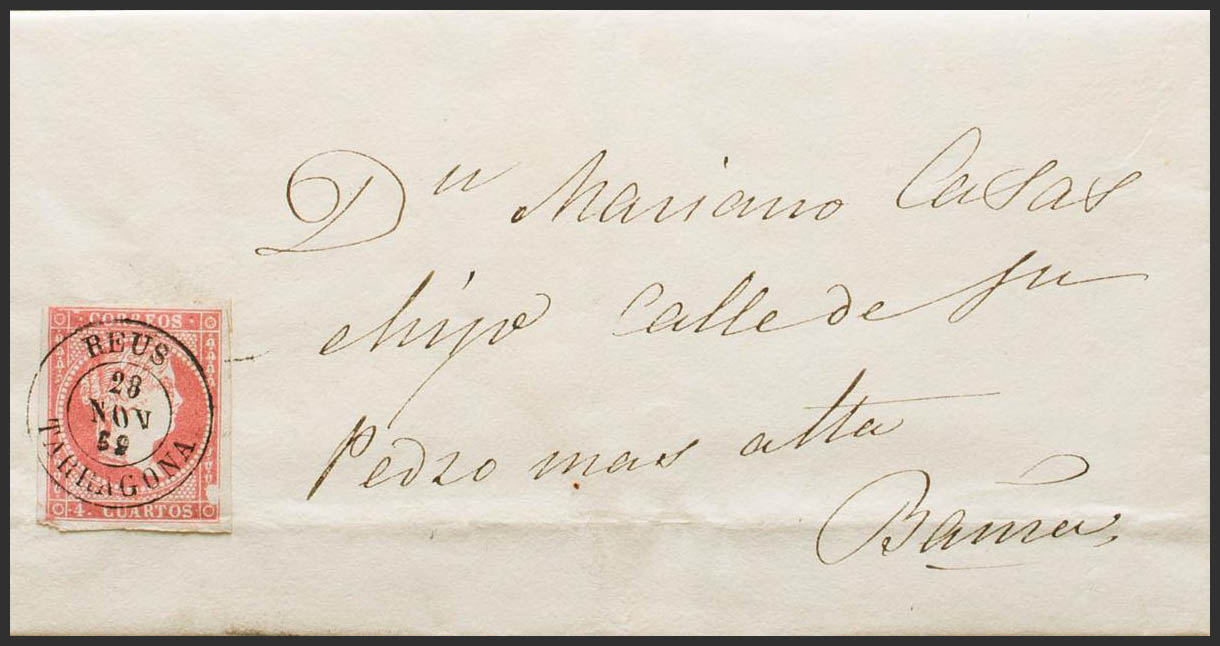 Dn Mariano Casas
é hijo Calle de Sn
Pedro mas alta
Barna
CORREOS
REUS
28
NOV
59
TARRAGONA
4. CUARTOS